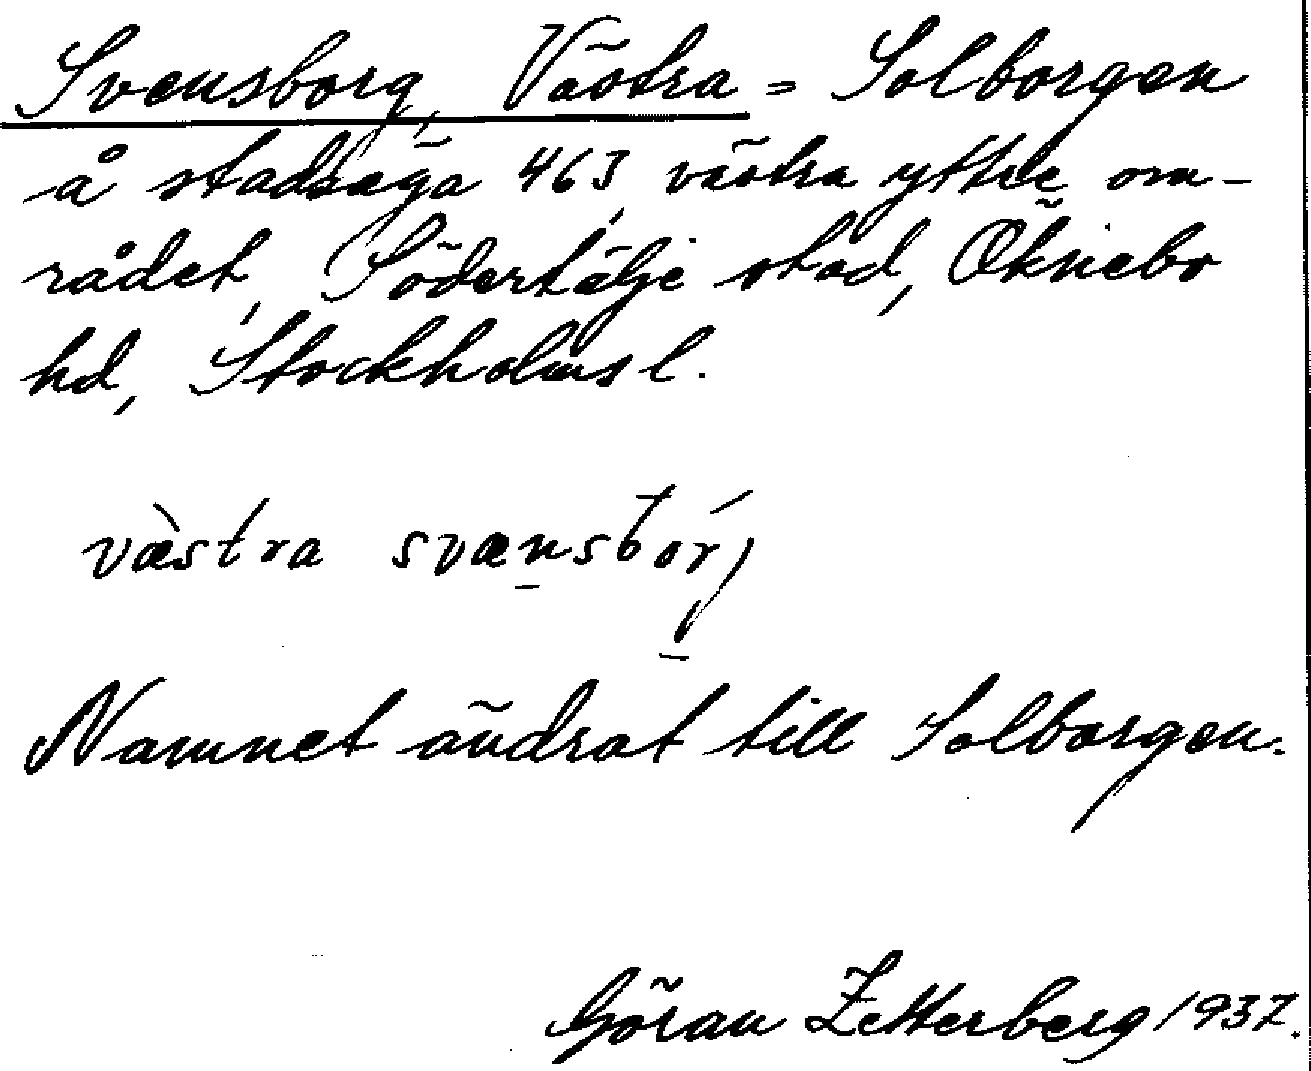 Svensborg, Västra = Solborgen
å stadsäga 463, västra yttre om-
rådet, Södertälje stad, Öknebo
hd, Stockholms l.
væ̀stra svænsbórj
Namnet ändrat till Solborgen.
Göran Zetterberg 1937.